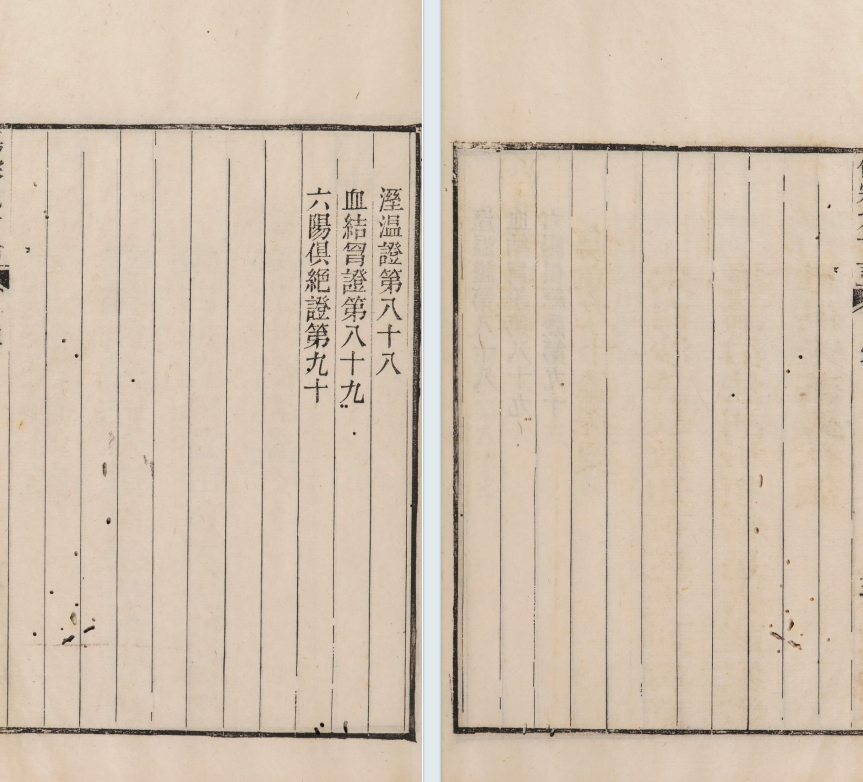 溼温證第八十八
血結胷證第八十九
六陽俱絶證第九十